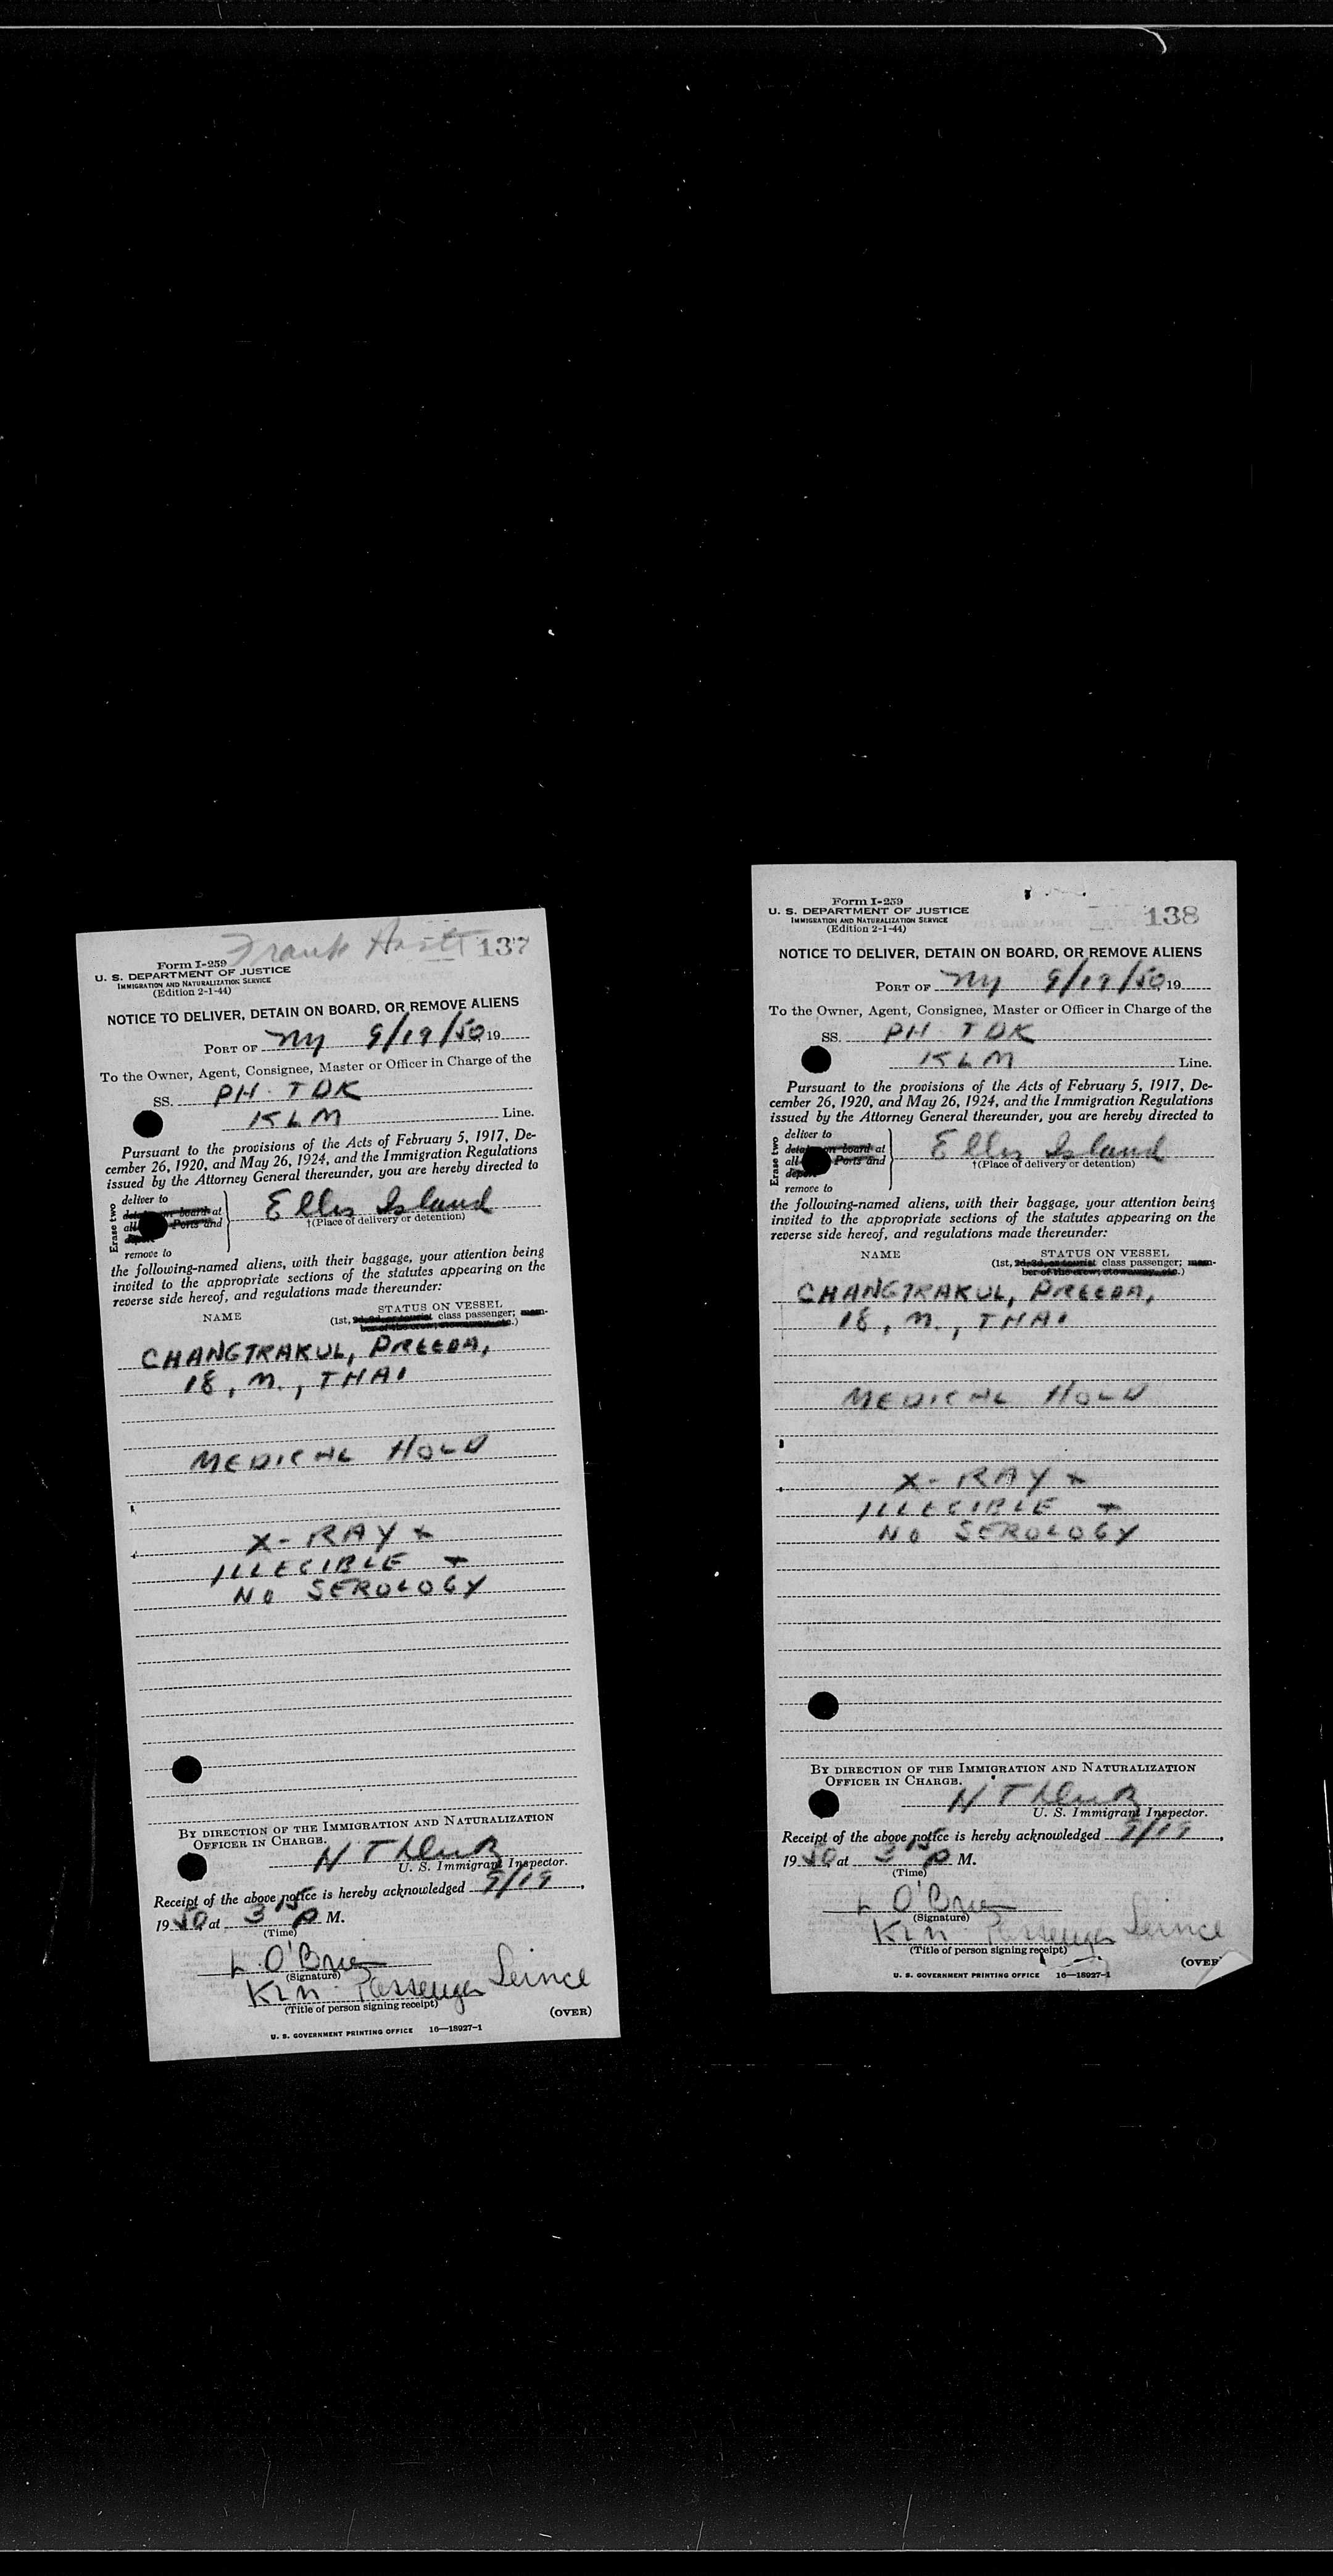 137
Form I-259
U. S. DEPARTMENT OF JUSTICE
IMMIGRATION AND NATURALIZATION SERVICE
(Edition 2-1-44)
NOTICE TO DELIVER, DETAIN ON BOARD, OR REMOVE ALIENS
PORT OF NY 9/19/50, 19
To the Owner, Agent, Consignee, Master or Officer in Charge of the
SS. PH-TDK
KLM Line.
Pursuant to the provisions of the Acts of February 5, 1917, De-
cember 26, 1920, and May 26, 1924, and the Immigration Regulations
issued by the Attorney General thereunder, you are hereby directed to
Erase two
deliver to
on board at
Ports and
remove to
Ellis Island
†(Place of delivery or detention)
the following-named aliens, with their baggage, your attention being
invited to the appropriate sections of the statutes appearing on the
reverse side hereof, and regulations made thereunder:
NAME STATUS ON VESSEL
(1st, 2d, 3d, or tourist class passenger; mem-
ber of the crew, stowaway, etc.)
CHANGTRAKUL, PREEDA,
18, M., THAI
MEDICAL HOLD
X-RAY +
ILLEGIBLE +
NO SEROLOGY
BY DIRECTION OF THE IMMIGRATION AND NATURALIZATION
OFFICER IN CHARGE.
U. S. Immigrant Inspector.
Receipt of the above notice is hereby acknowledged 9/19,
1950, at 3 15 P M.
(Time)
L. O'Brien
(Signature)
KLM Passenger Service
(Title of person signing receipt)
(OVER)
U. S. GOVERNMENT PRINTING OFFICE 16—18927-1
138
Form I-259
U. S. DEPARTMENT OF JUSTICE
IMMIGRATION AND NATURALIZATION SERVICE
(Edition 2-1-44)
NOTICE TO DELIVER, DETAIN ON BOARD, OR REMOVE ALIENS
PORT OF NY 9/19/50, 19
To the Owner, Agent, Consignee, Master or Officer in Charge of the
SS. PH-TDK
KLM Line.
Pursuant to the provisions of the Acts of February 5, 1917, De-
cember 26, 1920, and May 26, 1924, and the Immigration Regulations
issued by the Attorney General thereunder, you are hereby directed to
Erase two
deliver to
on board at
all Ports and
remove to
Ellis Island
†(Place of delivery or detention)
the following-named aliens, with their baggage, your attention being
invited to the appropriate sections of the statutes appearing on the
reverse side hereof, and regulations made thereunder:
NAME STATUS ON VESSEL
(1st, 2d, 3d, or tourist class passenger; mem-
ber of the crew, stowaway, etc.)
CHANGTRAKUL, PREEDA,
18, M., THAI
MEDICAL HOLD
X-RAY +
ILLEGIBLE +
NO SEROLOGY
BY DIRECTION OF THE IMMIGRATION AND NATURALIZATION
OFFICER IN CHARGE.
U. S. Immigrant Inspector.
Receipt of the above notice is hereby acknowledged 9/19,
1950, at 3 15 P M.
(Time)
L O'Brien
(Signature)
KLM Passenger Service
(Title of person signing receipt)
(OVER
U. S. GOVERNMENT PRINTING OFFICE 16—18927-1